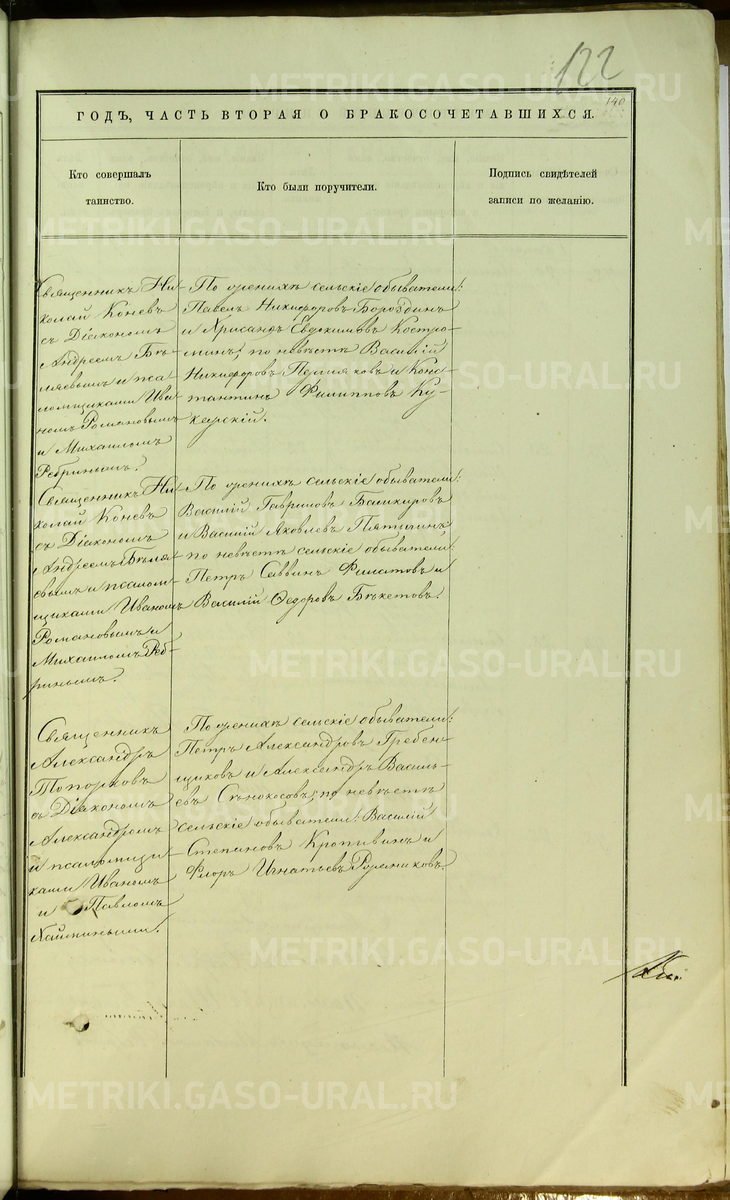 122
140
ГОДЪ, ЧАСТЬ ВТОРАЯ О БРАКОСОЧЕТАВШИХСЯ.
Кто совершалъ
таинство.
Кто были поручители.
Подпись свидѣтелей
записи по желанію.
Священникъ Ни-
колай Коневъ
съ Діакономъ
Андреемъ Бѣ-
ляевымъ и пса-
ломщиками Ива-
номъ Романовымъ
и Михаиломъ
Ребринымъ.
По женихѣ сельскіе обыватели:
Павелъ Никифоровъ Бороздинъ
и Хрисанфъ Евдокимовъ Костро-
минъ; по невѣстѣ Василій
Никифоровъ Пермяковъ и Конс-
тантинъ Филипповъ Ку-
жерскій.
Священникъ Ни-
колай Коневъ
съ Діакономъ
Андреемъ Бѣля-
евымъ и псалом-
щиками Иваномъ
Романовымъ и
Михаиломъ Реб-
ринымъ.
По женихѣ сельскіе обыватели:
Василій Гавриловъ Башкировъ
и Василій Яковлевъ Пятилинъ
по невѣстѣ сельскіе обыватели:
Петръ Саввинъ Филатовъ и
Василій Ѳедоровъ Бѣкетовъ.
Священникъ
Александръ
Топорковъ
съ Діакономъ
Александромъ
и псаломщи-
ками Иваномъ
и Павломъ
По женихѣ сельскіе обыватели:
Петръ Александровъ Гребен-
щиковъ и Александръ Василь-
евъ Сѣнокосовъ; по невѣстѣ
сельскіе обыватели: Василій
Степановъ Кропивинъ и
Флоръ Игнатьевъ
METRIKI.GASO-URAL.RU
METRIKI.GASO-URAL.RU
METRIKI.GASO-URAL.RU
METRIKI.GASO-URAL.RU
METRIKI.GASO-URAL.RU
METRIKI.GASO-URAL.RU
METRIKI.GASO-URAL.RU
METRIKI.GASO-URAL.RU